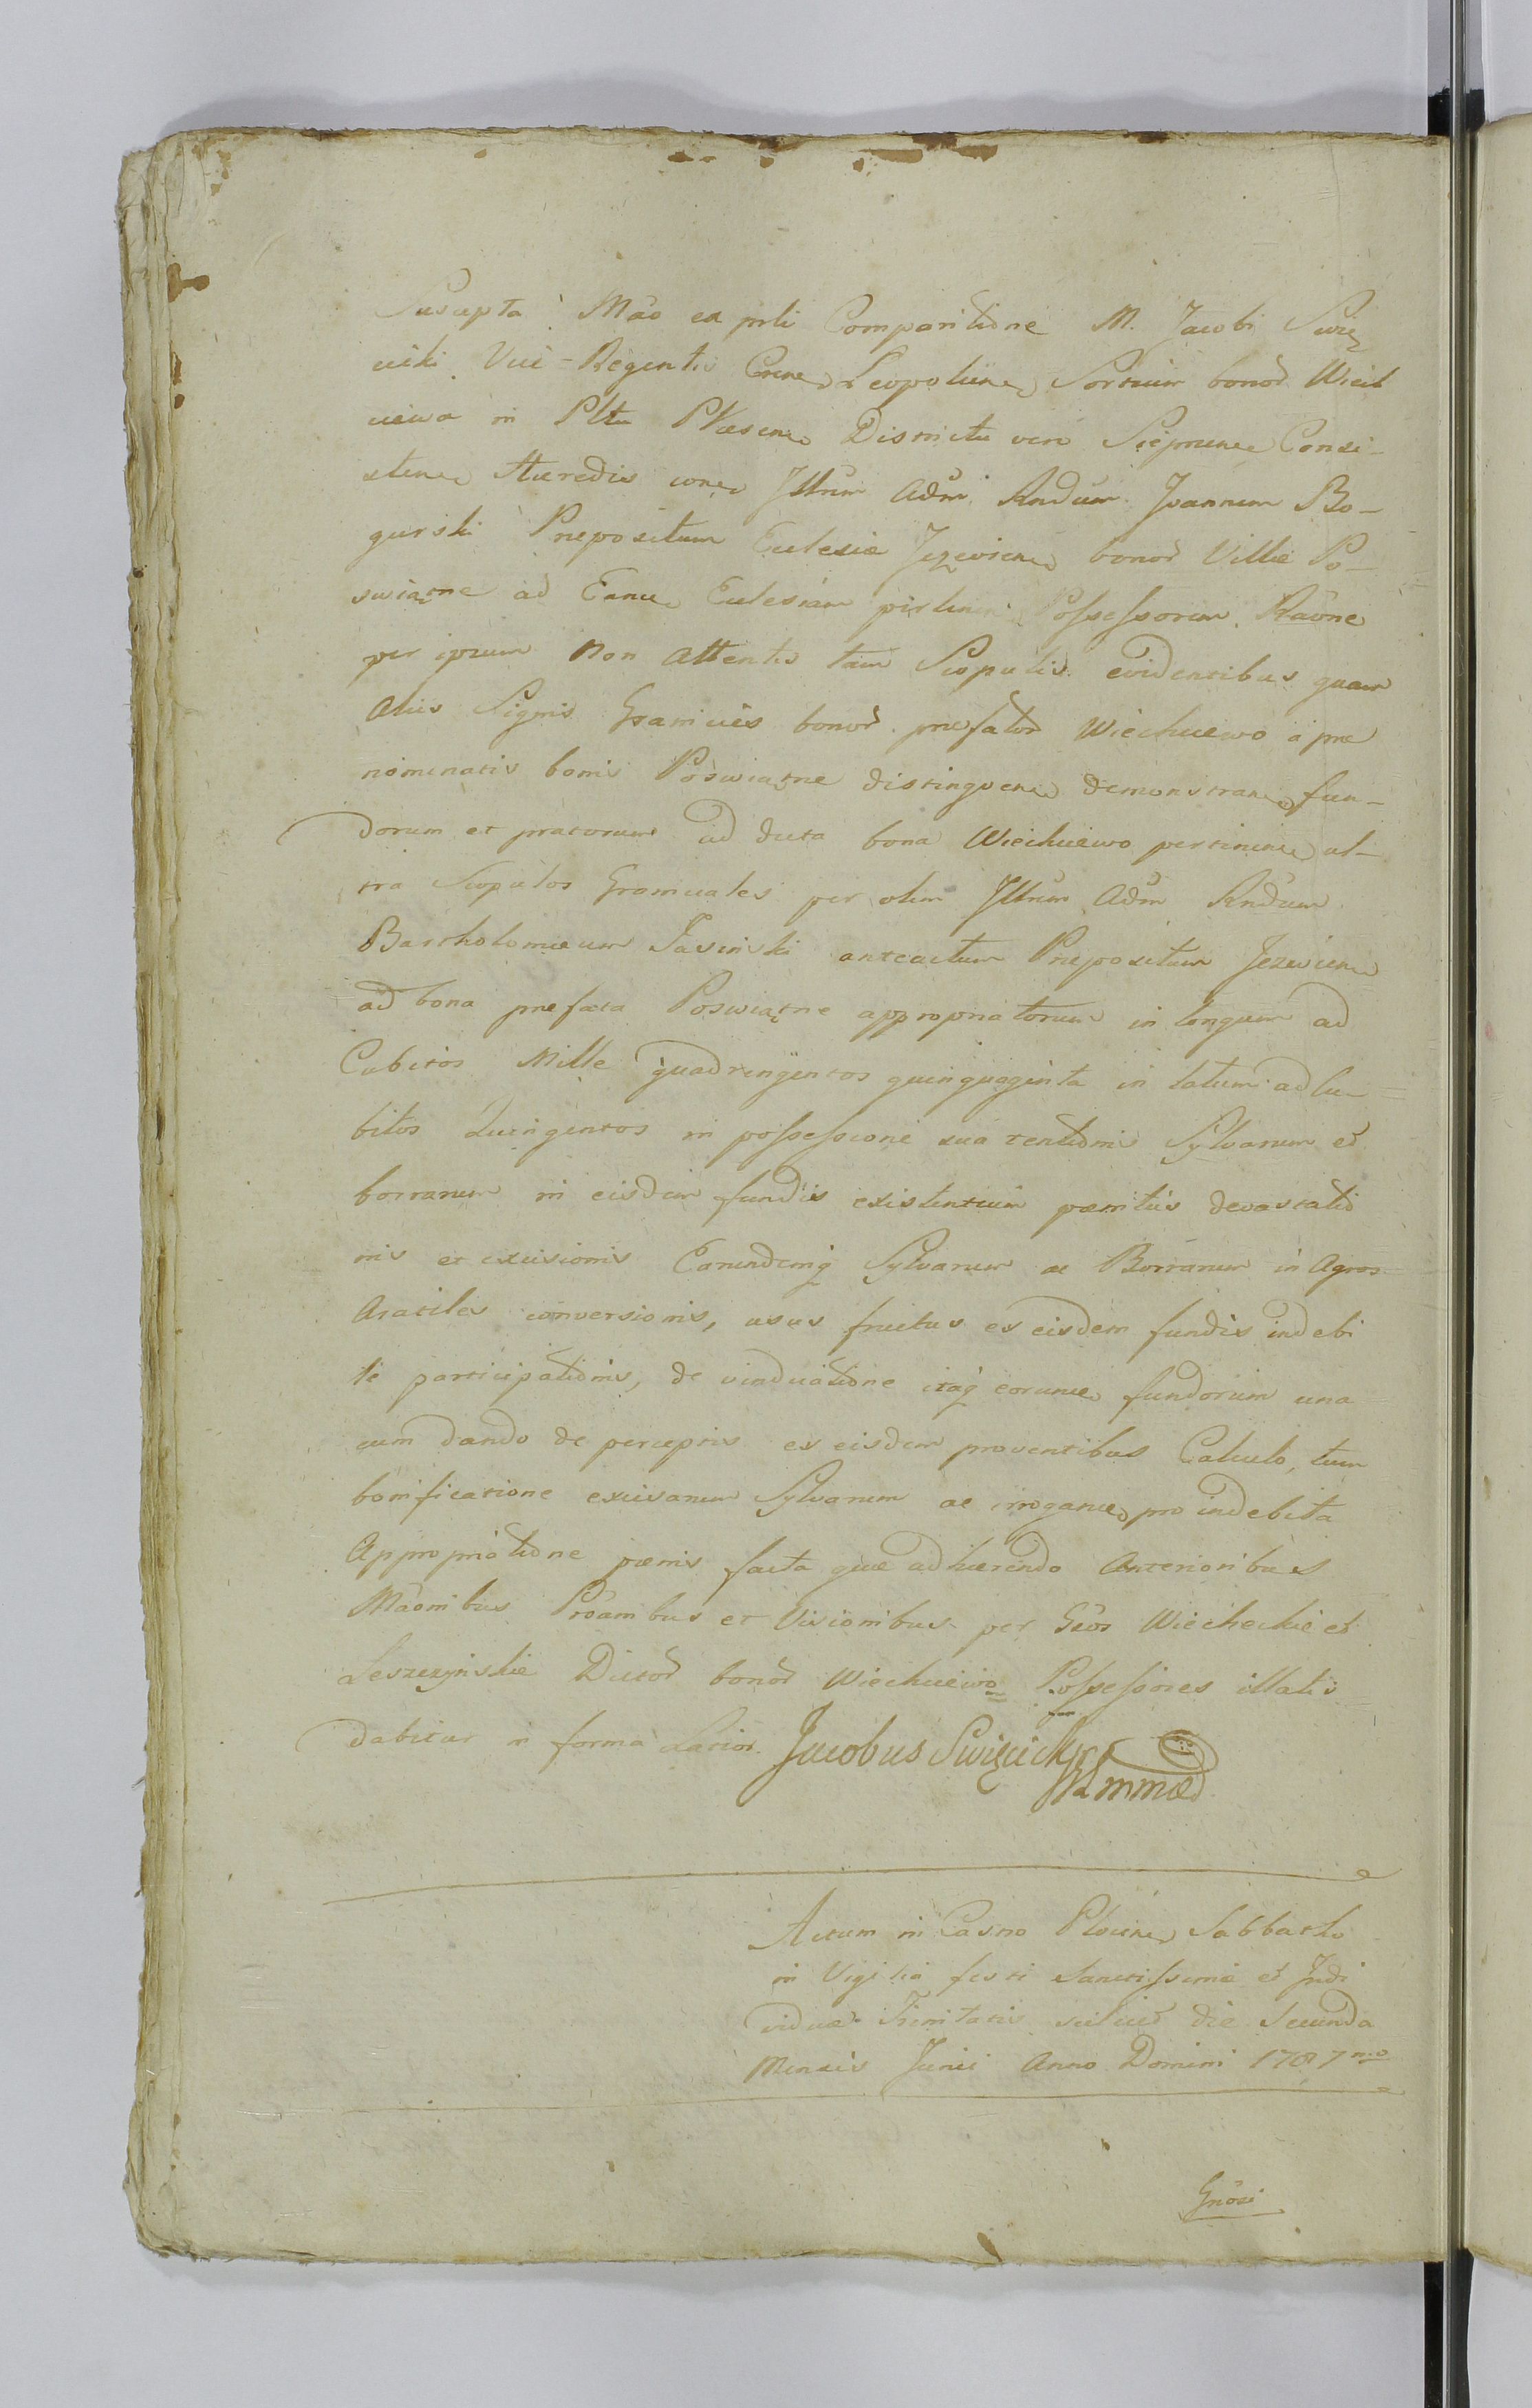 Suscepta Mão ex prli Comparitione M. Jacobi Swię
cicki Vice-Regentis Cnae Leopoliens Sortium bonor Wiech
ciewo in Pltu Plocens Districtu vero Sieprcens Consi-
stens Haeredis cone Illrum Adm Rndum Joannem Bo-
gurski Praepositum Eclesiae Jezeviens bonor Villae Po-
swiątne ad Eance Eclesiam pertinen Possessorem. Raône
per ipsum non attentis tam Scopulis evidentibus quam
Aliis Signis Granicies bonor praefator Wiechciewo a prae
nominatis bonis Poswiątne distinguen demonstran fun-
dorum et pratorum ad dicta bona Wiechciewo pertinen ul-
tra Scopulos Granicales per olim Illrum Adm Rndum
Bartholomaeum Jasinski anteactum Praepositum Jezeviens
ad bona praefata Poswiątne appropriatorum in longum ad
Cubitos Mille quadringentos quinquaginta in latum ad Cu-
bitos Quingentos in possessione sua tentionis Sylvarum et
borrarum in eisdem fundis existentium paenitus devastatio
nis et excisionis Earundemq Sylvarum ac Borrarum in Agros
Aratiles conversionis, usus fructus ex eisdem fundis indebi
te participationis, de vinducatione itaq eorunce fundorum una
cum dando de perceptis ex eisdem proventibus Calculo, tum
bonificatione excisarum Sylvarum ac irrogane pro indebita
Appropriatione paenis facta quae adhaerendo Anterioribus
Maônibus Proâonibus et Visionibus per Gsos Wiecheckie et
Leszczynskie Dictor bonor Wiechciewo Possessores illatis
dabitur in forma Latior. Jacobus Swięcicki
mp
Actum in Castro Plocen Sabbatho
in Vigilia festi Sanctissimae et Indi
viduae Trinitatis scilicet die Secunda
Mensis Junii Anno Domini 1787mo
Gnôsi